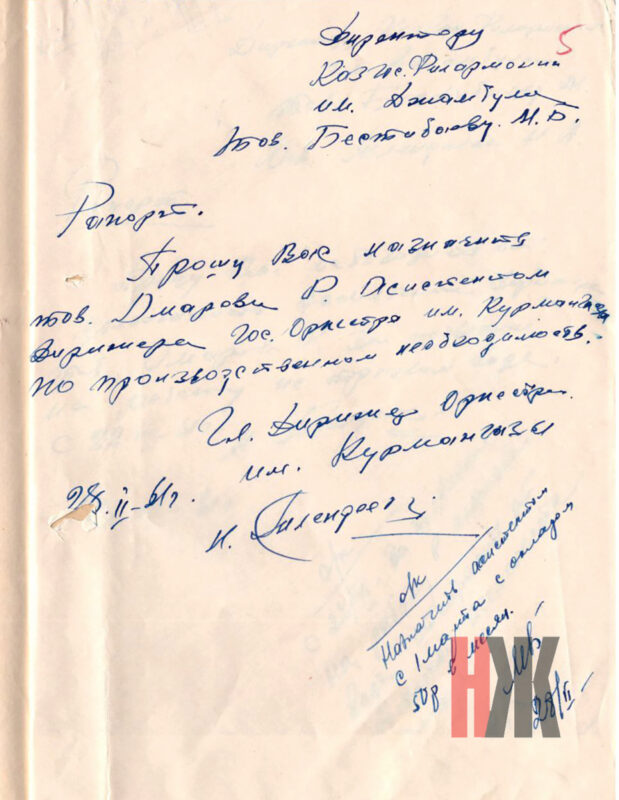 5
Директору
Каз Гос. Филармонии
им. Джамбула
тов. Бестибаеву. М. Б.
Рапорт.
Прошу Вас назначить
тов. Омарова Р. Асистентом
дирижера Гос. Оркестра им. Курмангазы
по производственном необходимость.
Гл. Дирижер Оркестра
им. Курмангазы
28. II - 61 г.
о/к
Назначить асистентом
с 1 марта с окладом
50 р в месяц.
МБ
28/II -
НЖ